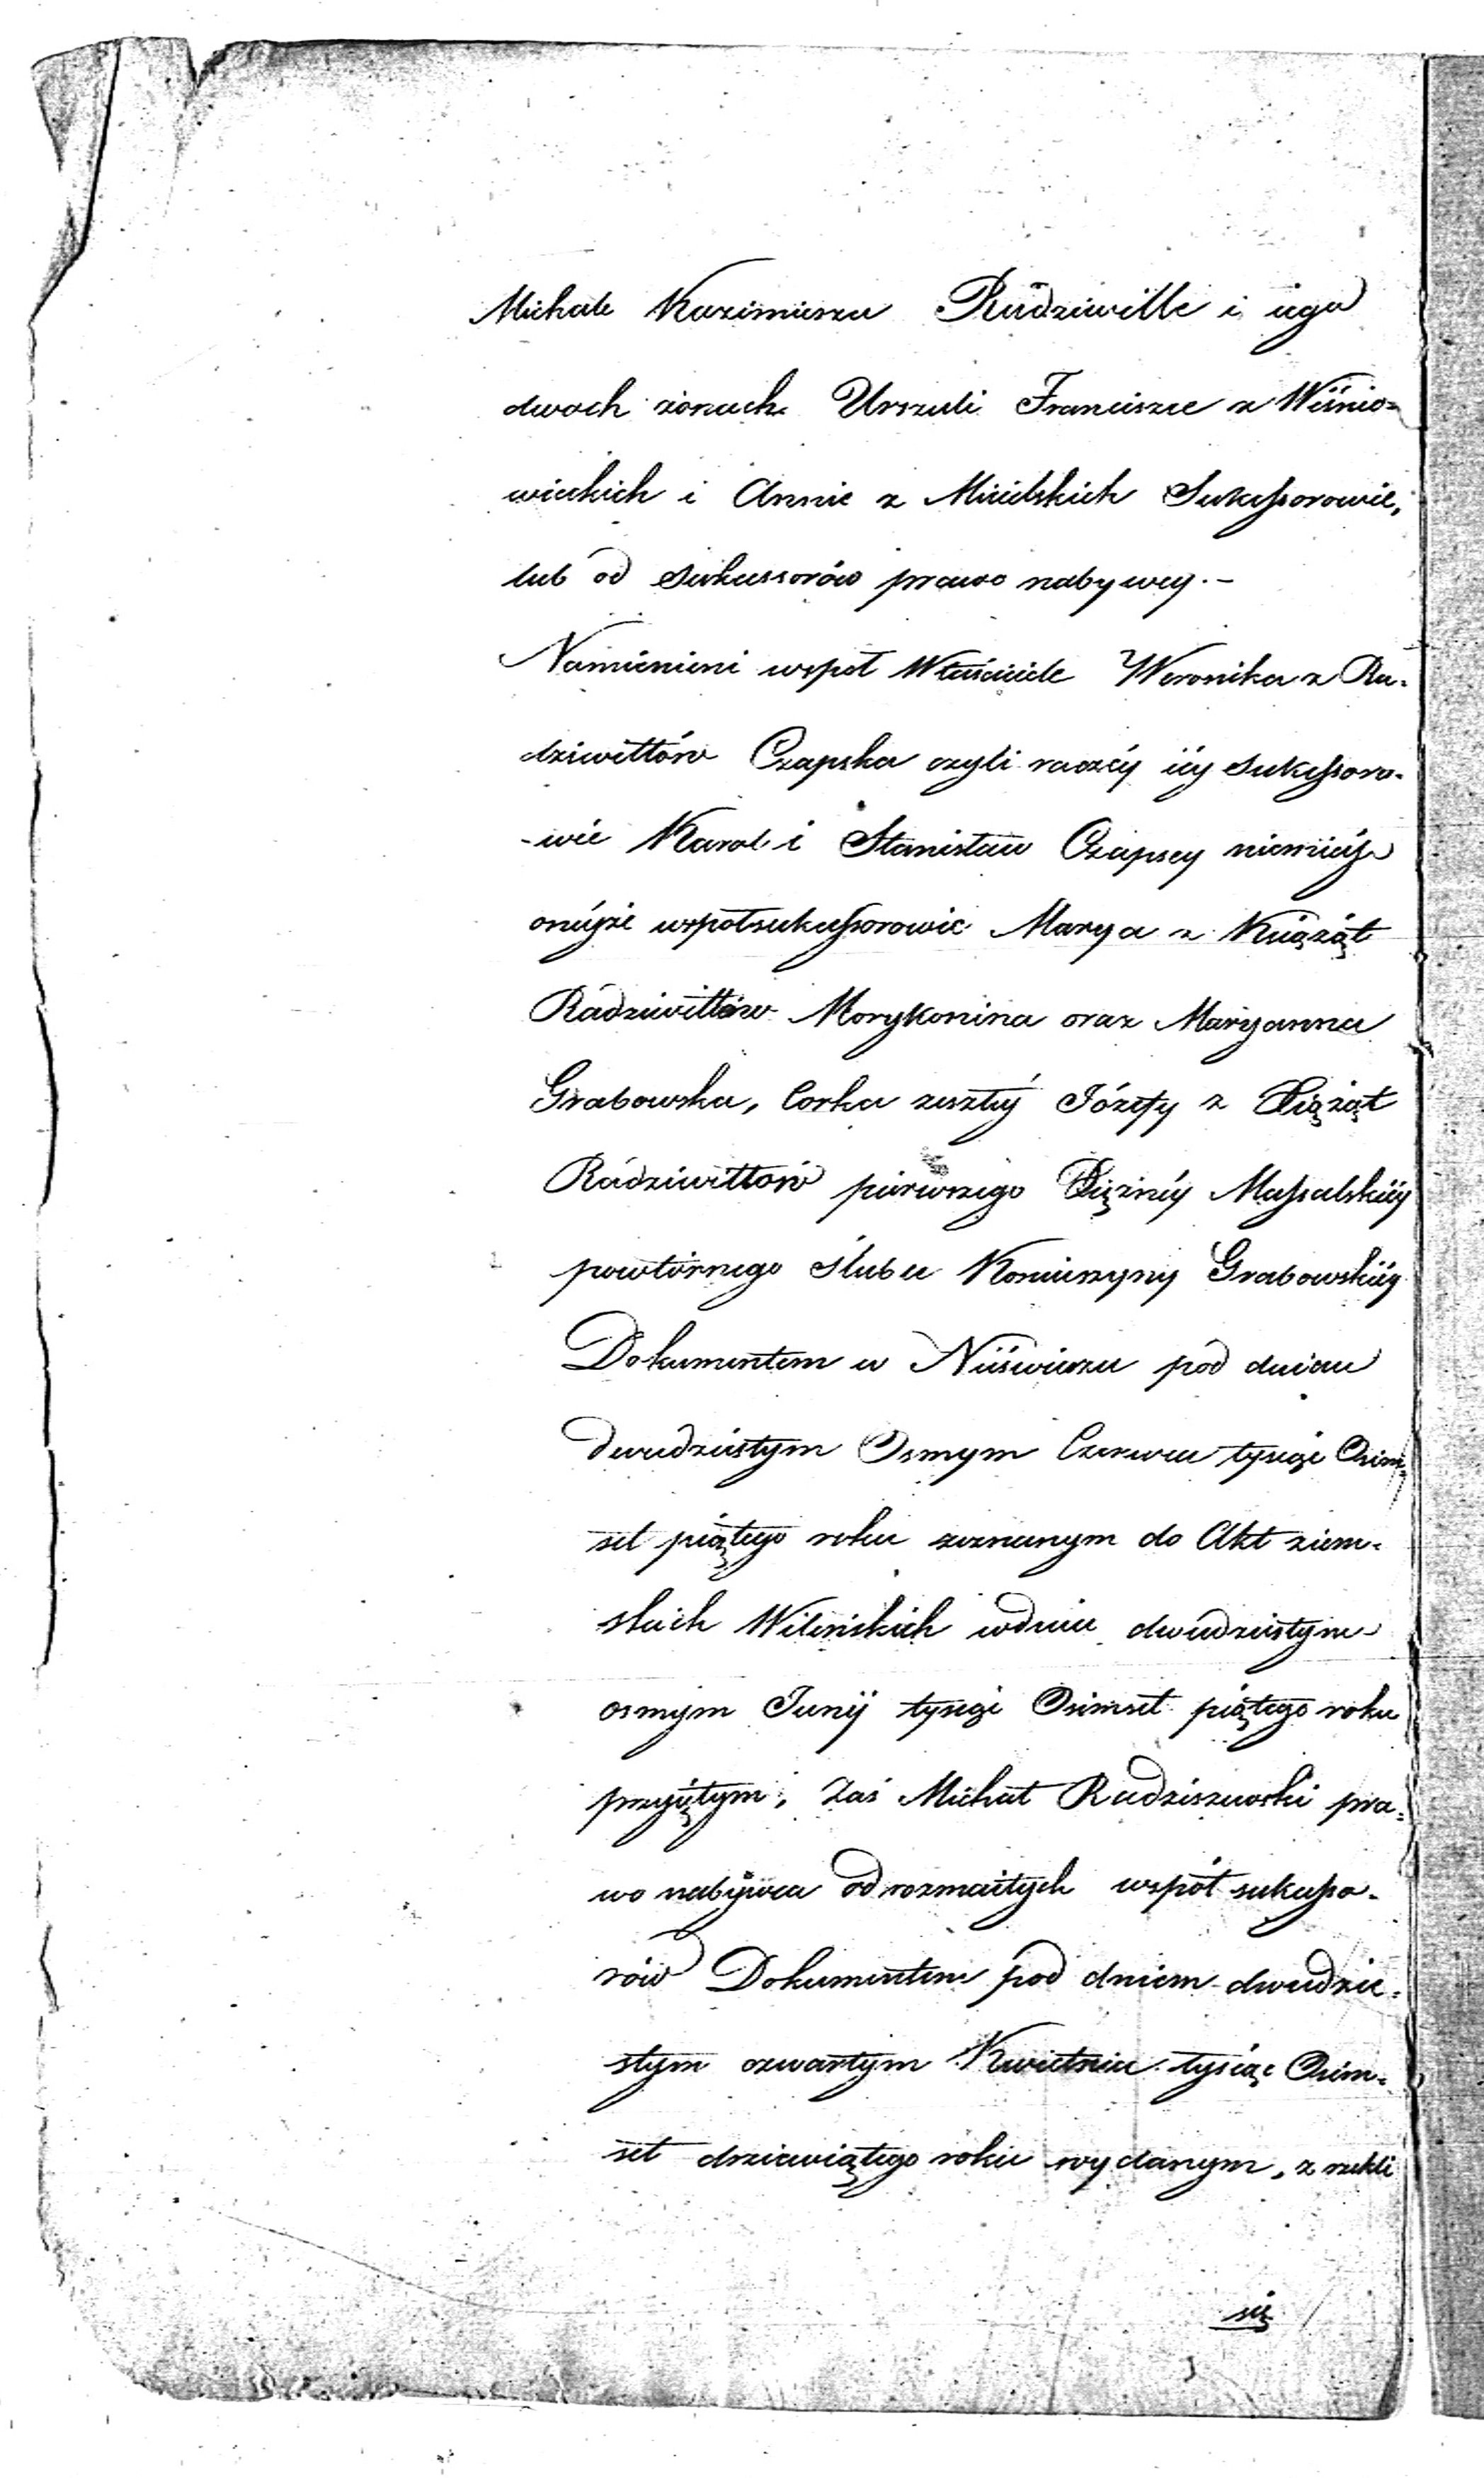 Michale Kazimierzu Radziwille i iego
dwoch żonach Urszuli Franciszce z Wiśnio=
wieckich i Annie z Micielskich Sukcessorowie,
lub od Sukcessorów prawo nabywcy.-
Namienieni wspoł Właściciele Weronika z Ra-
dziwiłłów Czapska czyli raczéy iéy Sukcessoro-
-wie Karol i Stanisław Czapscy niemniéy
onéyże wspołsukcessorowie Marya z Xiąząt
Radziwiłłów Morykonina oraz Maryanna
Grabowska, Corka zeszłéy Józefy z Xiążąt
Radziwiłłów pierwszego Xiężnéy Massalskiéy
powtórnego ślubu Koniuszyny Grabowskiéy
Dokumentem w Nieświezu pod dniem
dwudziestym Osmym Czerwca tysiąc Osim=
set piątego roku zeznanym do Akt ziem-
skich Wileńskich w dniu dwudziestym
osmym Junij tysiąc Osimset piątego roku
przyiętym, Zaś Michał Radziszewski pra-
wo nabywca od rozmaitych wspoł sukcesso-
rów Dokumentem pod dniem dwudzie-
stym czwartym Kwietnia tysiąc Osim-
set dziewiątego roku wydanym, z rzekli
się